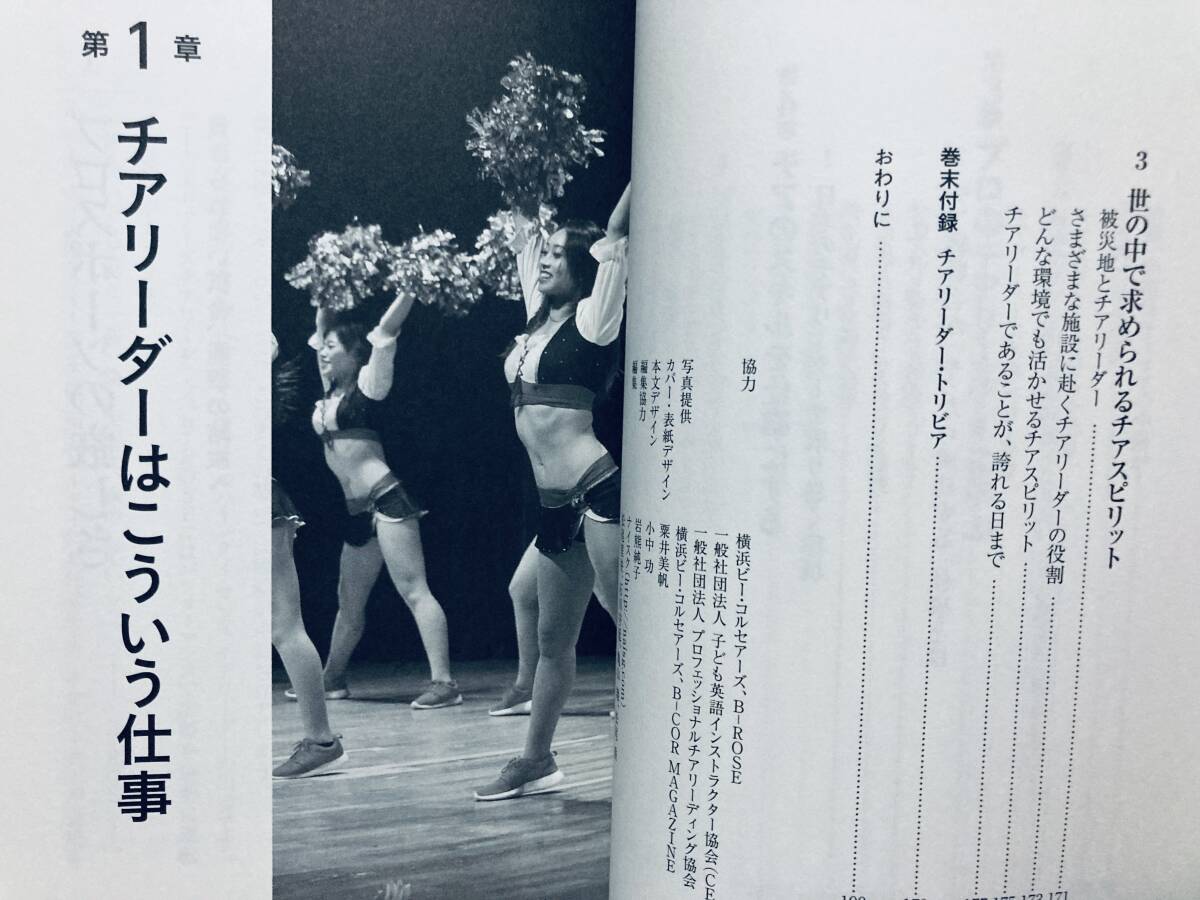 3 世の中で求められるチアスピリット
被災地とチアリーダー
さまざまな施設に赴くチアリーダーの役割
どんな環境でも活かせるチアスピリット
チアリーダーであることが、誇れる日まで
171
173
175
177
巻末付録 チアリーダー・トリビア
おわりに
協力
横浜ビー・コルセアーズ、B-ROSE
一般社団法人 子ども英語インストラクター協会(CE
一般社団法人 プロフェッショナルチアリーディング協会
写真提供
横浜ビー・コルセアーズ、B-COR MAGAZINE
カバー・表紙デザイン
粟井美帆
本文デザイン
小中 功
編集協力
岩熊純子
編集
ナイスク
第1章
チアリーダーはこういう仕事